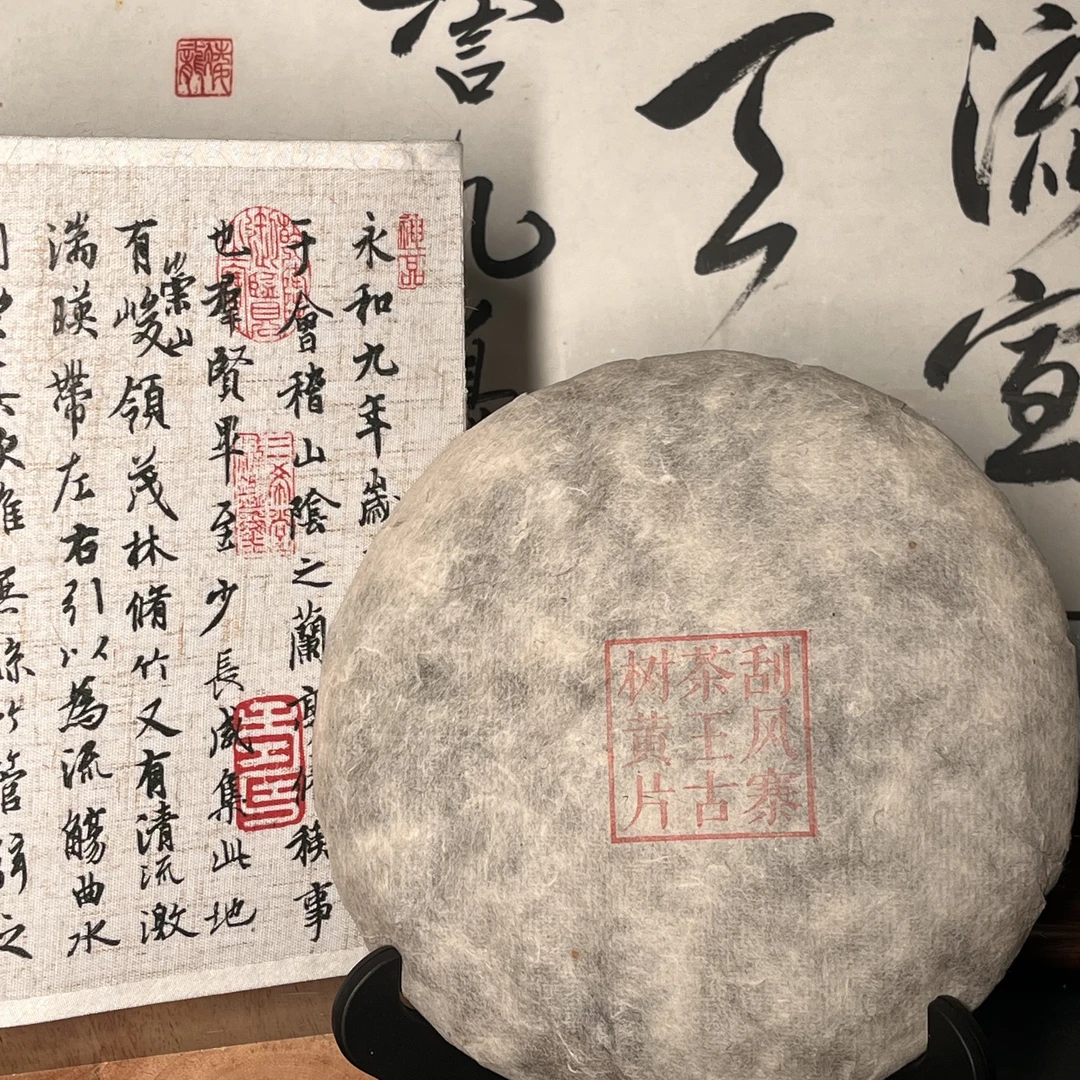 流宣
天
神品
永和九年歲
于會稽山陰之蘭亭
稧事
也羣賢畢至少長咸集此地
有崇山峻領茂林脩竹又有清流激
湍暎帶左右引以為流觴曲水
管
之
三希堂
刮风寨
茶王古
树黄片